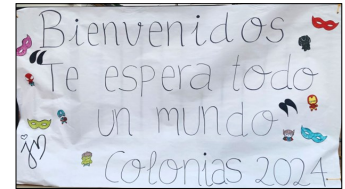 Bienvenidos
"Te espera todo
un mundo"
Colonias 2024